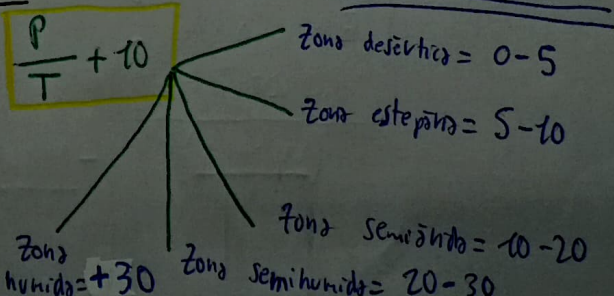 P
T + 10
Zona desértica = 0-5
Zona estepária = 5-10
Zona semiárida = 10-20
Zona semihumida = 20-30
Zona
humida = +30